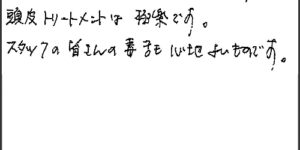 頭皮トリートメントは極楽です。
スタッフの皆さんの毒舌も心地よいものです。